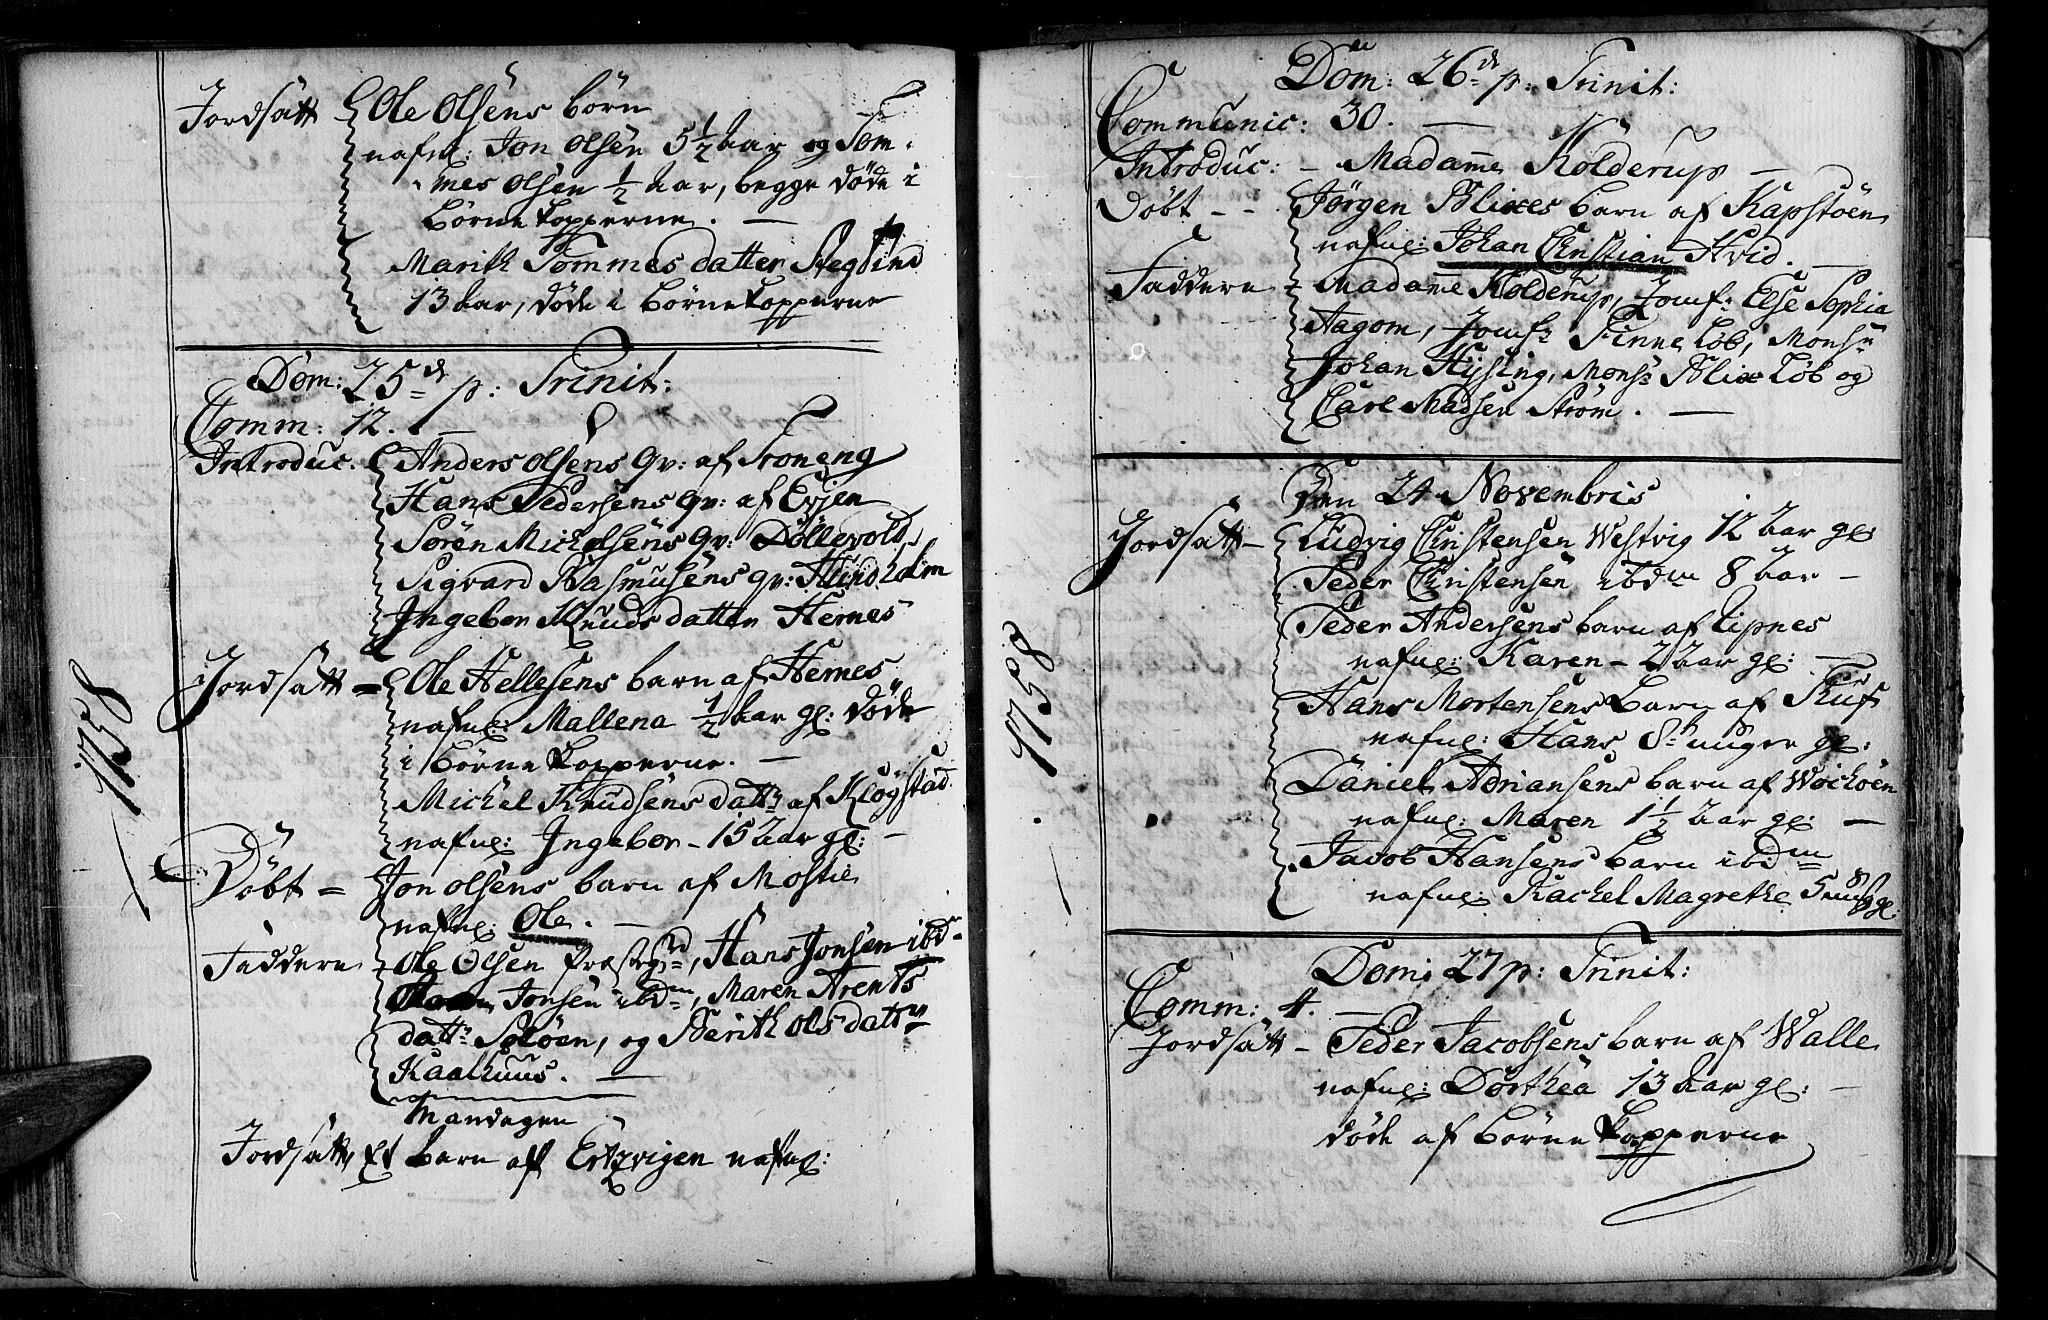 Jordsatt Ole Olsens børn
nafnl: Jon Olsen 5 1/2 Aar og Tom-
mes Olsen 1/2 Aar, begge døde i
Børne Kopperne. —
Marith Tommes datter
13 Aar, døde i Børne Kopperne
Dom: 25de p: Trinit:
Comm: 12. —
Introduc: Anders Olsens qv: af Troneng
Hans Pedersens qv: af Evjen
Søren Mickelsens qv: Døllevold
Sigvard Rasmusens qv: Flindholm
Ingebor Knuds datter Hernes
Jordsatt = Ole Hellesens barn af Hernes
nafnl: Mallena 1/2 Aar gl: døde
i Børne Kopperne. —
Michel Knudsens dattr af Klogstad
nafnl: Ingebor - 15 Aar gl: —
Døbt = Jon Olsens barn af Mostie
nafnl: Ole. —
Faddere - Ole Olsen Præstegrd, Hans Jonsen ibd-
Jonsen ibdm, Maren Arents
dattr Soløen, og Berith Olsdattr
Kaalhuus. —
Mandagen
Jordsatt Et barn af Ertzvigen nafnl:
1758
Dom: 26de p: Trinit:
Communic: 30. —
Introduc: - Madame Kolderup —
Døbt - - Jørgen Blixes barn af Kapstøen
nafnl: Johan Christian Hvid. —
Faddere - Madame Kolderup, Jomfr Else Sophia
Aagom, Jomfr Finne Løb, Monsr
Johan Hysing, Monsr Blix Løb og
Carl Madsen Strøm. —
Den 24 Novembris
Jordsatt - Ludvig Christensen Westvig 12 Aar gl
Peder Christensen ibdm 8 Aar —
Peder Andersens barn af Lipnes
nafnl: Karen - 2 Aar gl: —
Hans Mortensens Barn af
nafnl: Hans 8te uger gl:
Daniel Adriansens barn af Wochøen
nafnl: Maren 1 1/2 Aar gl: —
Jacob Hansens barn ibdm
nafnl: Rachel Magrethe 5
1758
Dom: 27 p: Trinit:
Comm: 4. —
Jordsatt - Peder Jacobsens barn af Walle
nafnl: Dorthea 13 Aar gl: —
døde af Børne Kopperne